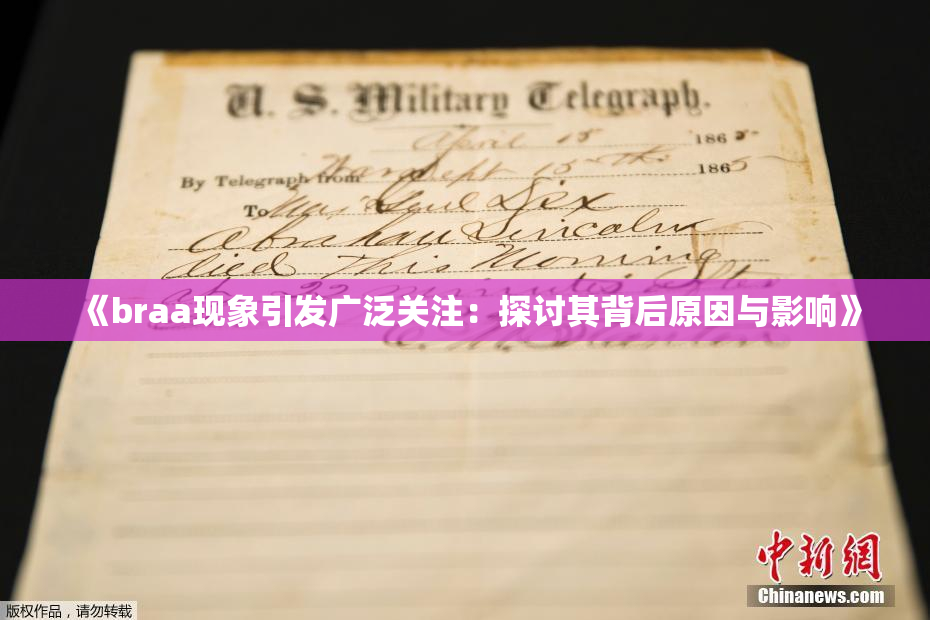 U. S. Military Telegraph.
April 15 1865
By Telegraph from War Dept 15th 1865
To Maj Genl Dix
Abraham Lincoln
died This Morning
22 minutes after
《braa现象引发广泛关注：探讨其背后原因与影响》
E. M. Stanton
中新网
Chinanews.com
版权作品，请勿转载